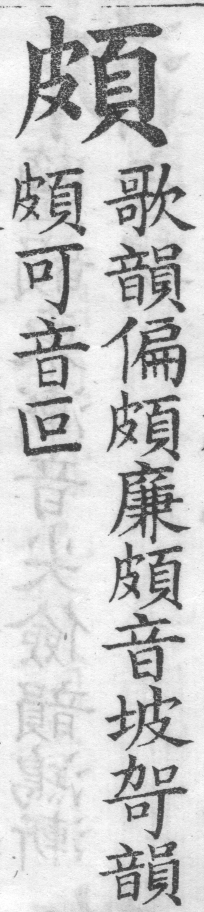 頗
歌韻偏頗廉頗音坡哿韻
頗可音叵